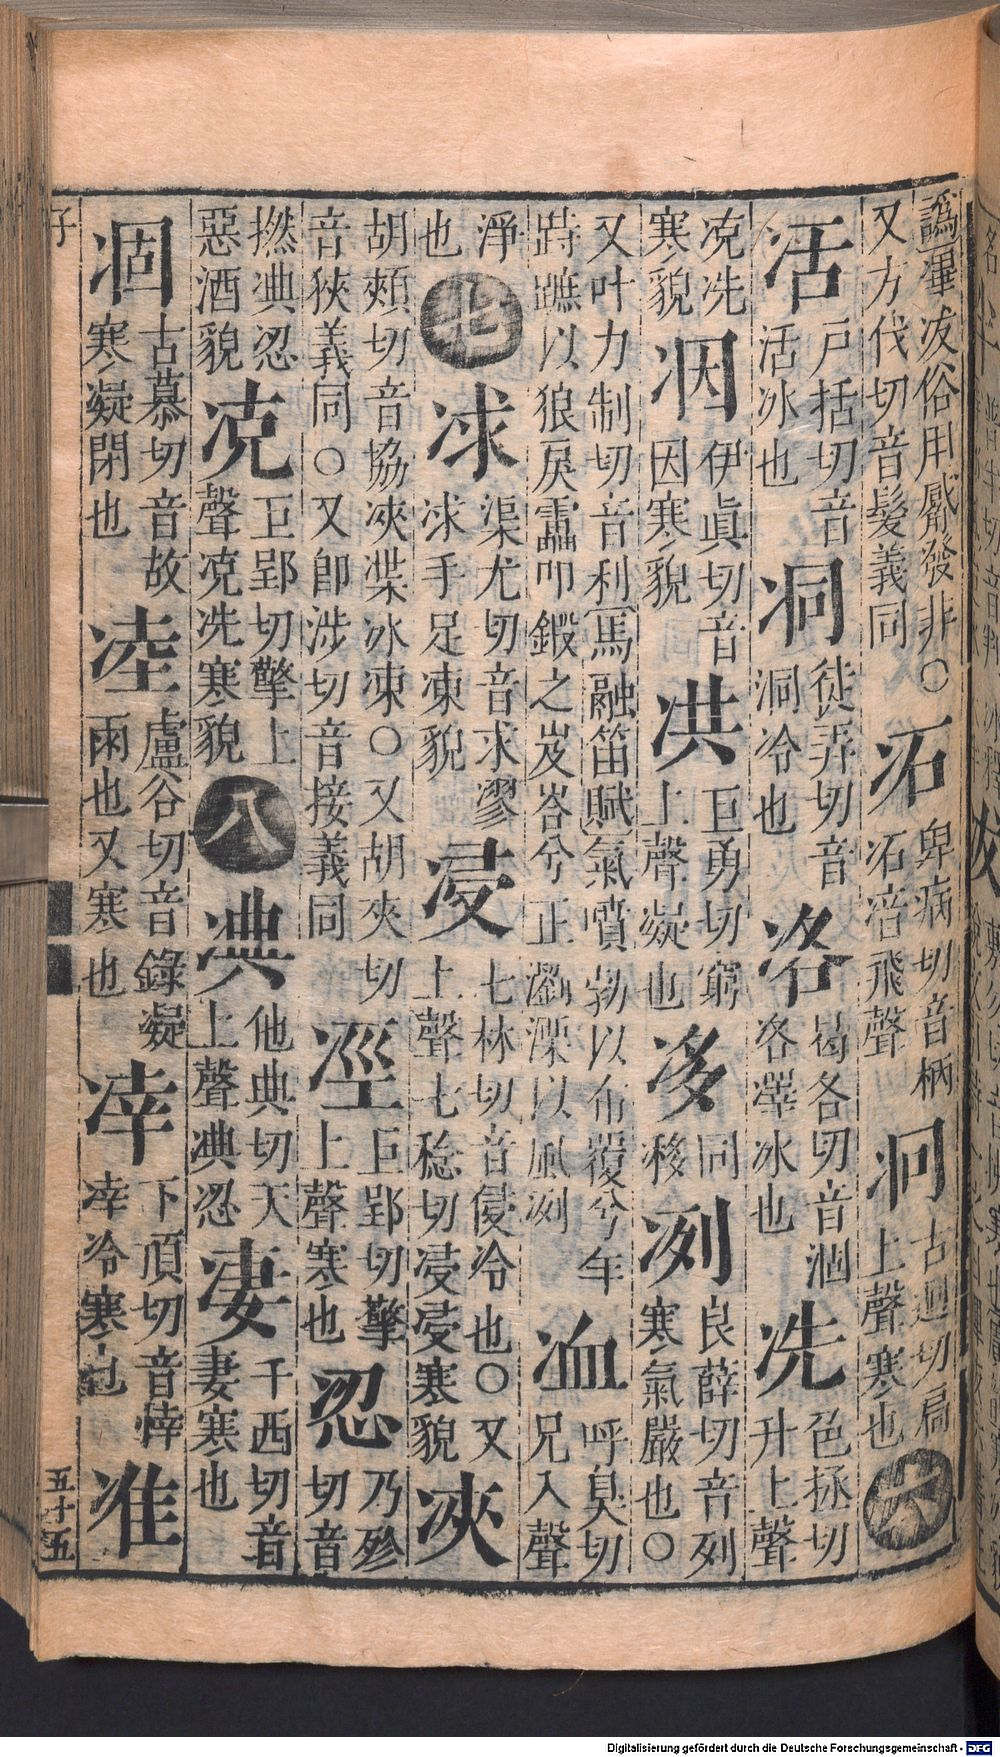 譌滭冹俗用觱發非○
又方伐切音髮義同
㓈 卑病切音柄
㓈涪音飛聲
泂 古迥切扃
上聲寒也 六
活 戸括切音
活冰也
洞 徒弄切音
洞冷也
洛 曷各切音涸
洛澤冰也
冼 色拯切
升上聲
凌冼
寒貌
㓰 伊眞切音
因寒貌
洪 巨勇切窮
上聲凝也
㓼 同
栘
冽 良薛切音列
寒氣嚴也○
又叶力制切音利馬融笛賦氣噴勃以布覆兮乍
跱蹠以狼戾靁叩鍛之岌峇兮正瀏溧以風冽
洫 呼臭切
兄入聲
淨
也 七
㓽 渠尤切音求漻
㓽手足凍貌
浸 七林切音侵冷也○又
上聲七稔切浸浸寒貌
浹
胡頰切音協浹渫冰凍○又胡夾切
音狹義同○又卽涉切音接義同
涇 巨郢切擎
上聲寒也
涊 乃殄
切音
撚淟涊
惡酒貌
凌 巨郢切擎上
聲凌冼寒貌
八
淟 他典切天
上聲淟涊
凄 千西切音
妻寒也
凅 古慕切音故
寒凝閉也
淕 盧谷切音錄凝
雨也又寒也
涬 下頂切音悻
涬冷寒也
准
子
五十五
Digitalisierung gefördert durch die Deutsche Forschungsgemeinschaft - DFG